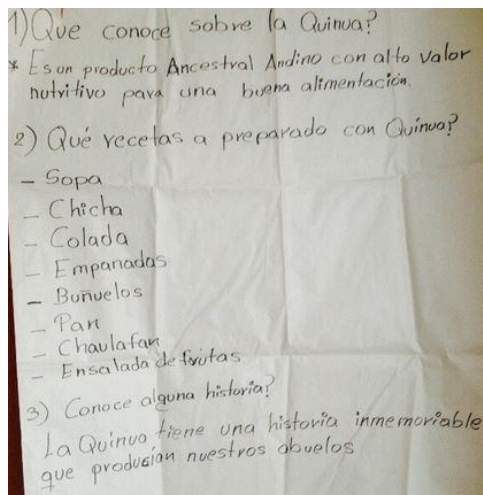 1) Qué conoce sobre la Quinua?
* Es un producto Ancestral Andino con alto valor
nutritivo para una buena alimentación.
2) Qué recetas a preparado con Quínua?
- Sopa
- Chicha
- Colada
- Empanadas
- Buñuelos
- Pan
- Chaulafan
- Ensalada de frutas
3) Conoce alguna historia?
La Quinua tiene una historia inmemoriable
que producían nuestros abuelos